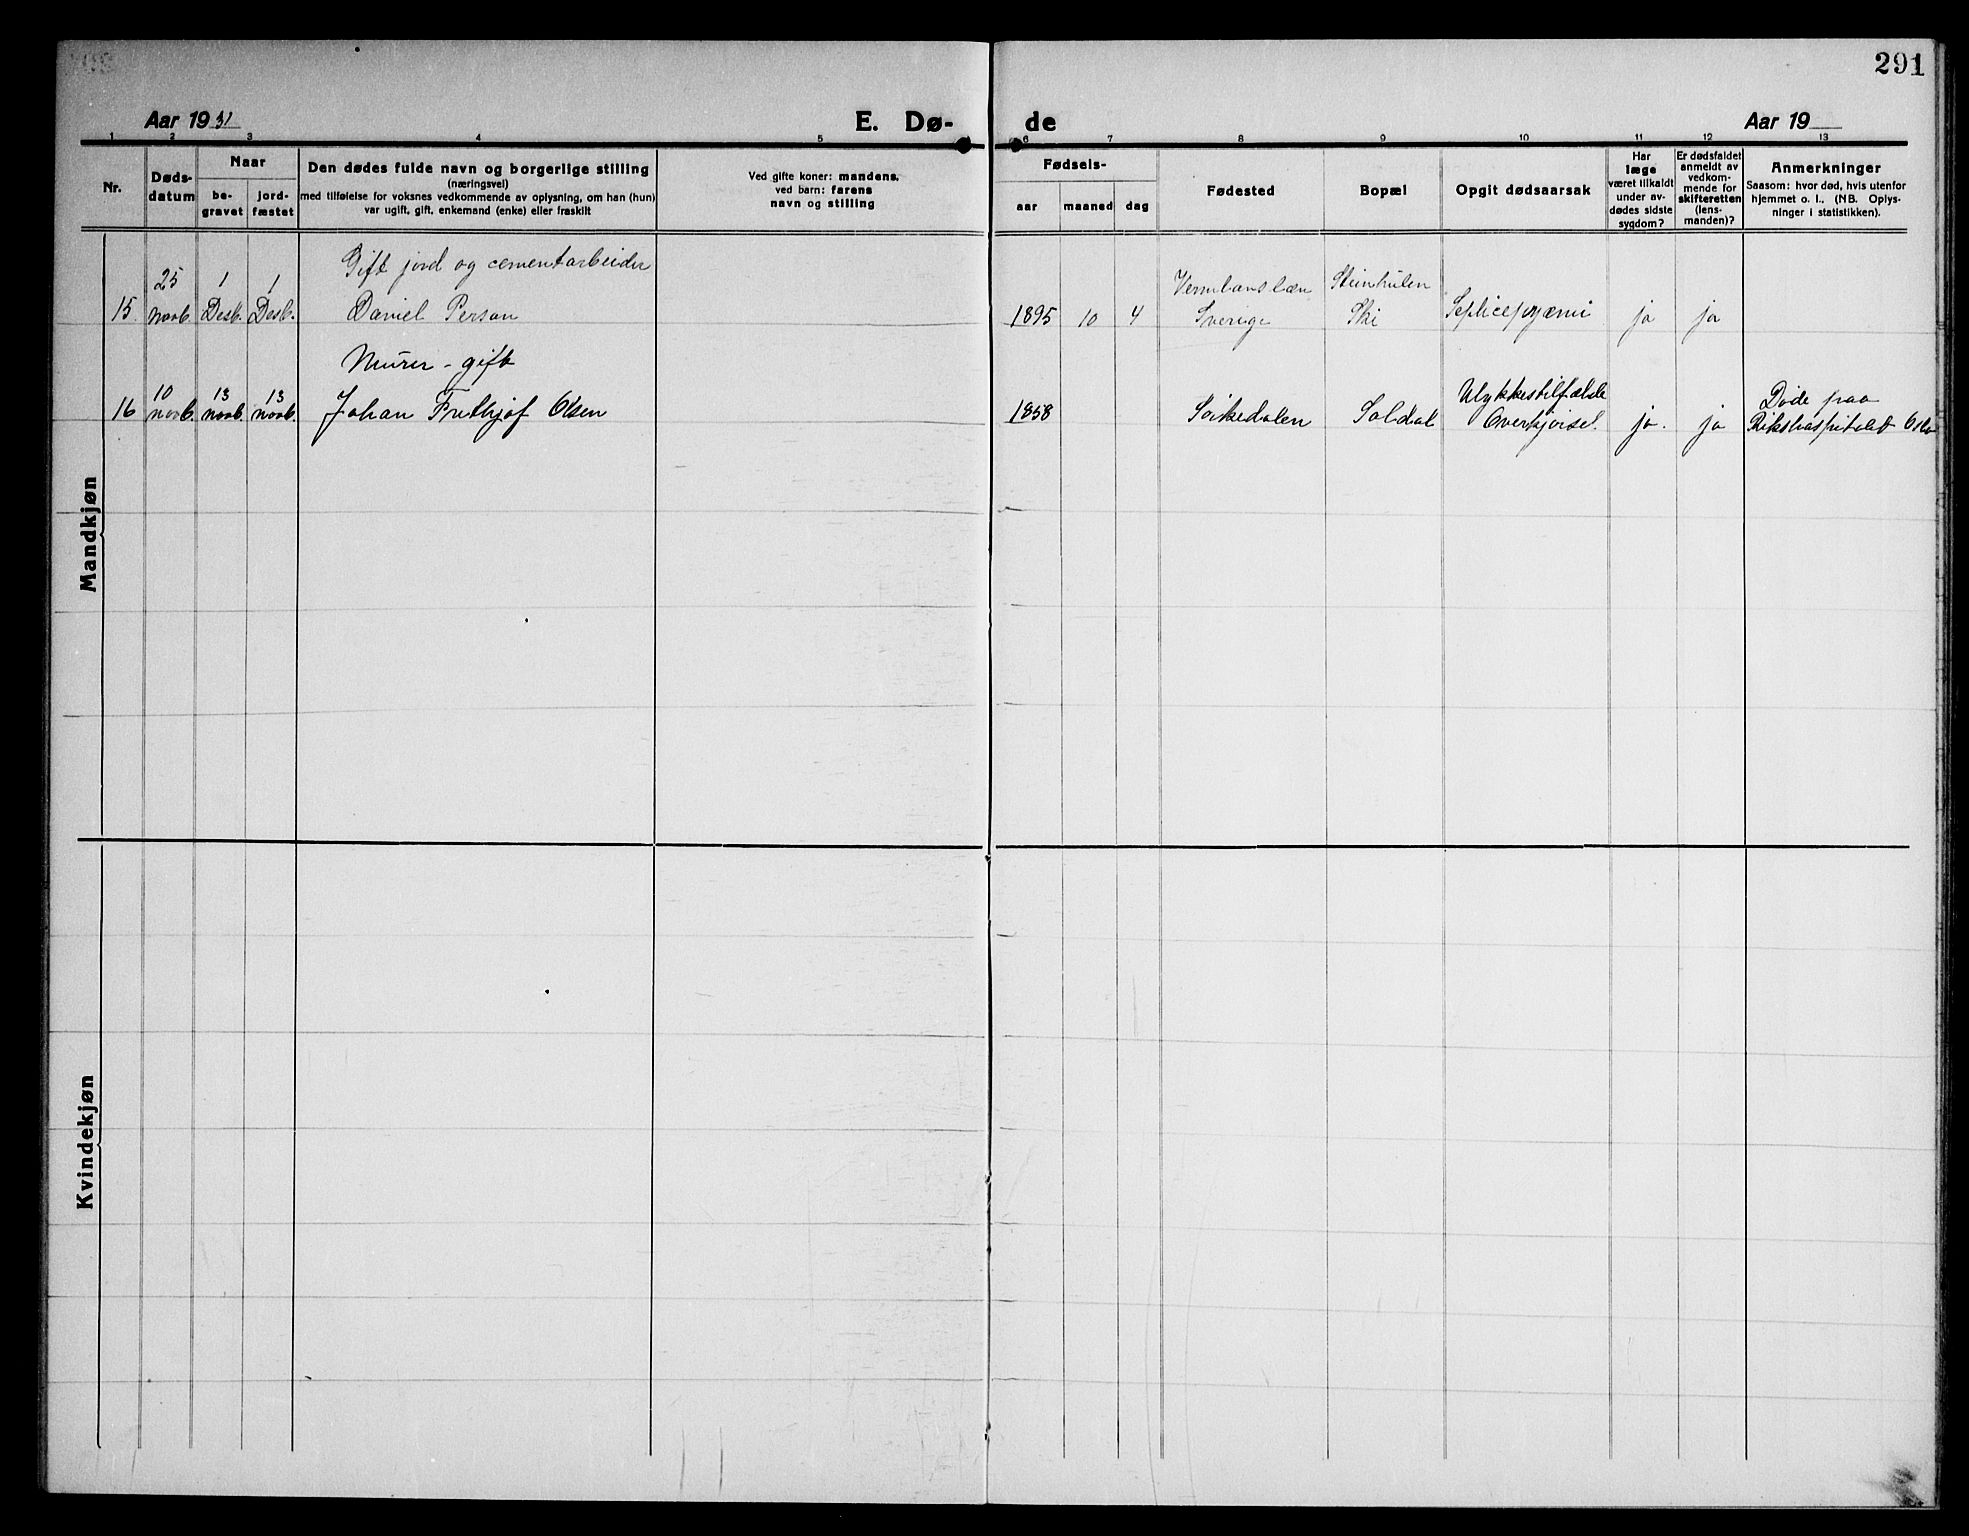 291
Aar 1931 E. Dø- de Aar 19
1 2 3 4 5 6 7 8 9 10 11 12 13
Nr.
Døds-
datum
Naar
be-
gravet
jord-
fæstet
Den dødes fulde navn og borgerlige stilling
(næringsvei)
med tilføielse for voksnes vedkommende av oplysning, om han (hun)
var ugift, gift, enkemand (enke) eller fraskilt
Ved gifte koner: mandens,
ved barn: farens
navn og stilling
Fødsels-
aar maaned dag
Fødested
Bopæl
Opgit dødsaarsak
Har
læge
været tilkaldt
under av-
dødes sidste
sygdom?
Er dødsfaldet
anmeldt av
vedkom-
mende for
skifteretten
(lens-
manden)?
Anmerkninger
Saasom: hvor død, hvis utenfor
hjemmet o. l., (NB. Oplys-
ninger i statistikken).
Mandkjøn
Gift jord og cementarbeider
25 1 1 Steinhulen
15 novb. Desb. Desb. Daniel Person 1895 10 4 Sverige Ski ja ja
Murer - gift
10 13 13 Ulykkestilfælde Døde paa
16 novb. novb. novb. Johan Frithjof Olsen 1858 Sørkedalen Soldal Overkjørsel. ja. ja Rikshospitalet Oslo
Kvindekjøn